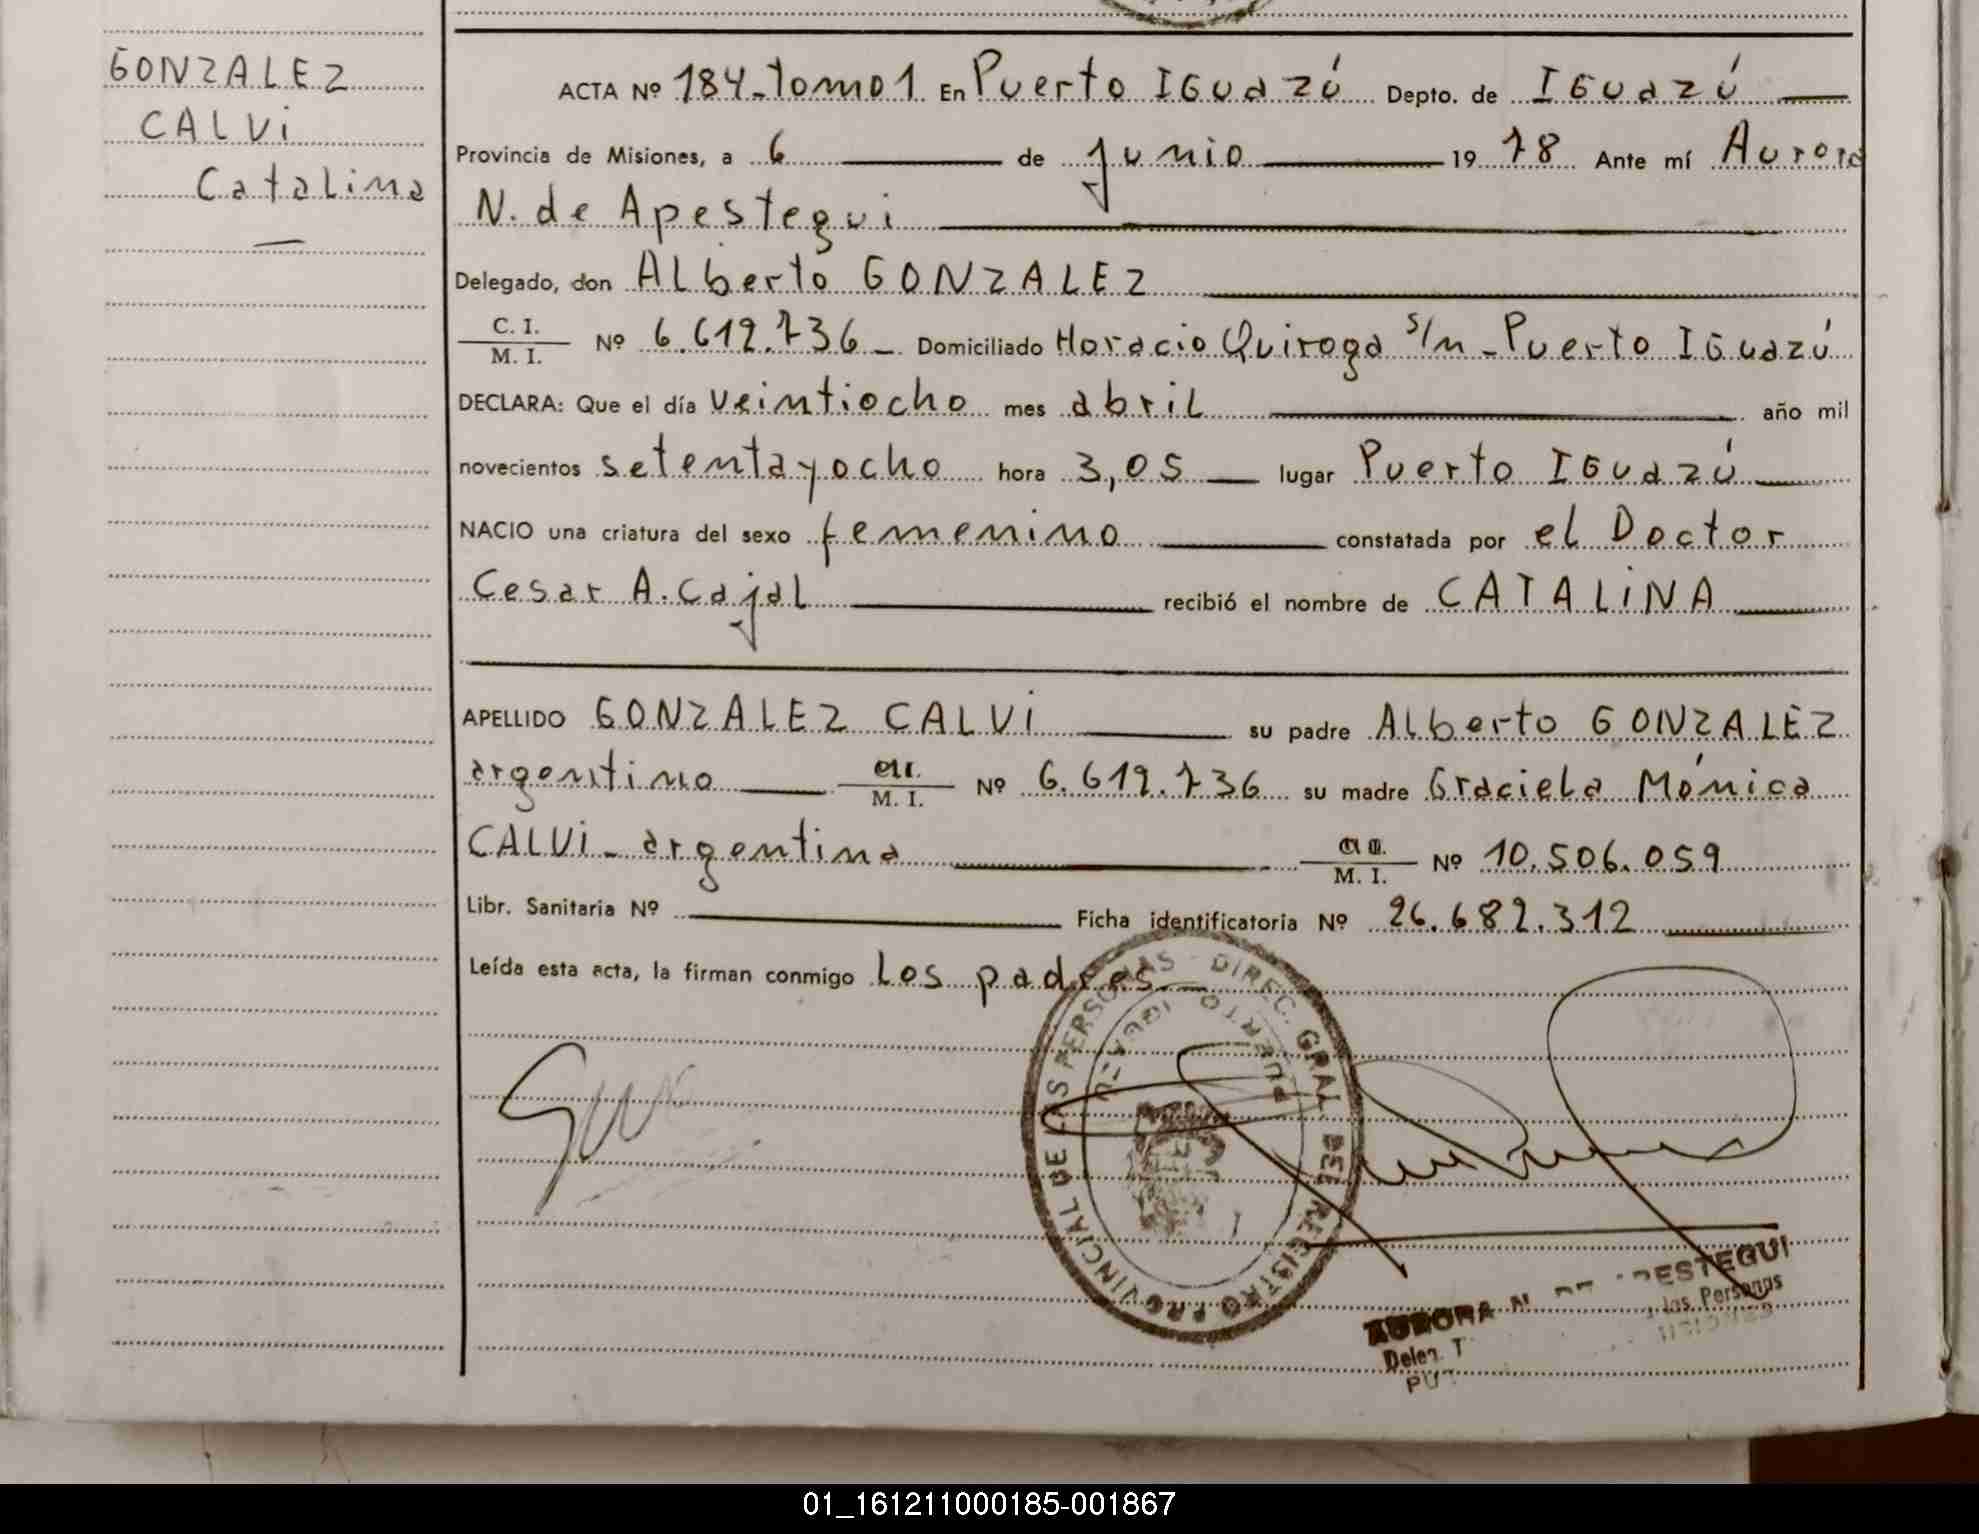 GONZALEZ
CALVi
Catalina
ACTA Nº 184_tomo 1 En Puerto IGuazú Depto. de IGuazú
Provincia de Misiones, a 6 de junio 19 78 Ante mí Aurora
N. de Apestegui
Delegado, don Alberto GONZALEZ
C. I.
M. I. Nº 6.612.736_ Domiciliado Horacio Quiroga s/n_Puerto IGuazú
DECLARA: Que el día veintiocho mes abril año mil
novecientos setentayocho hora 3,05 lugar Puerto IGuazú
NACIO una criatura del sexo femenino constatada por el Doctor
Cesar A. Cajal recibió el nombre de CATALiNA
APELLIDO GONZALEZ CALVi su padre Alberto GONZALEZ
argentino M. I. Nº 6.612.736 su madre Graciela Mónica
CALVi_argentina M. I. Nº 10.506.059
Libr. Sanitaria Nº Ficha identificatoria Nº 26.682.312
Leída esta acta, la firman conmigo los padres
DIREC. GRAL. DEL REGISTRO PROVINCIAL DE LAS PERSONAS
PUERTO IGUAZU
AURORA N. DE APESTEGUI
Deleg. las Personas
01_161211000185-001867